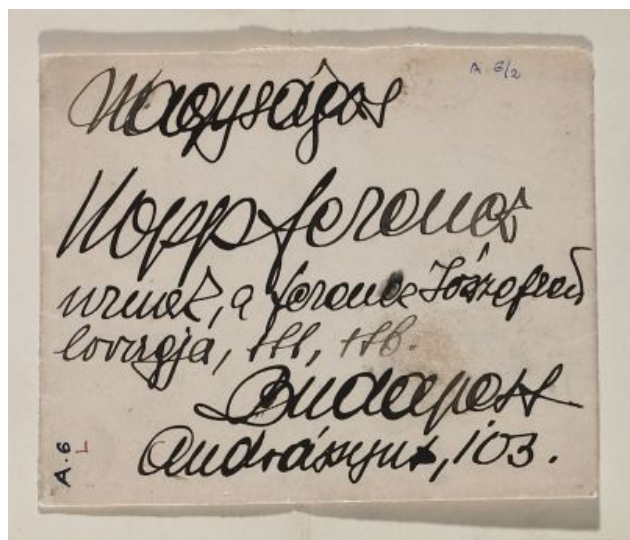 A. 6/2
Nagyságos
Hopp Ferencz
urnak, a Ferencz Józsefrend
lovagja, stb, stb.
Budapest
Andrássyut, 103.
A. 6
L